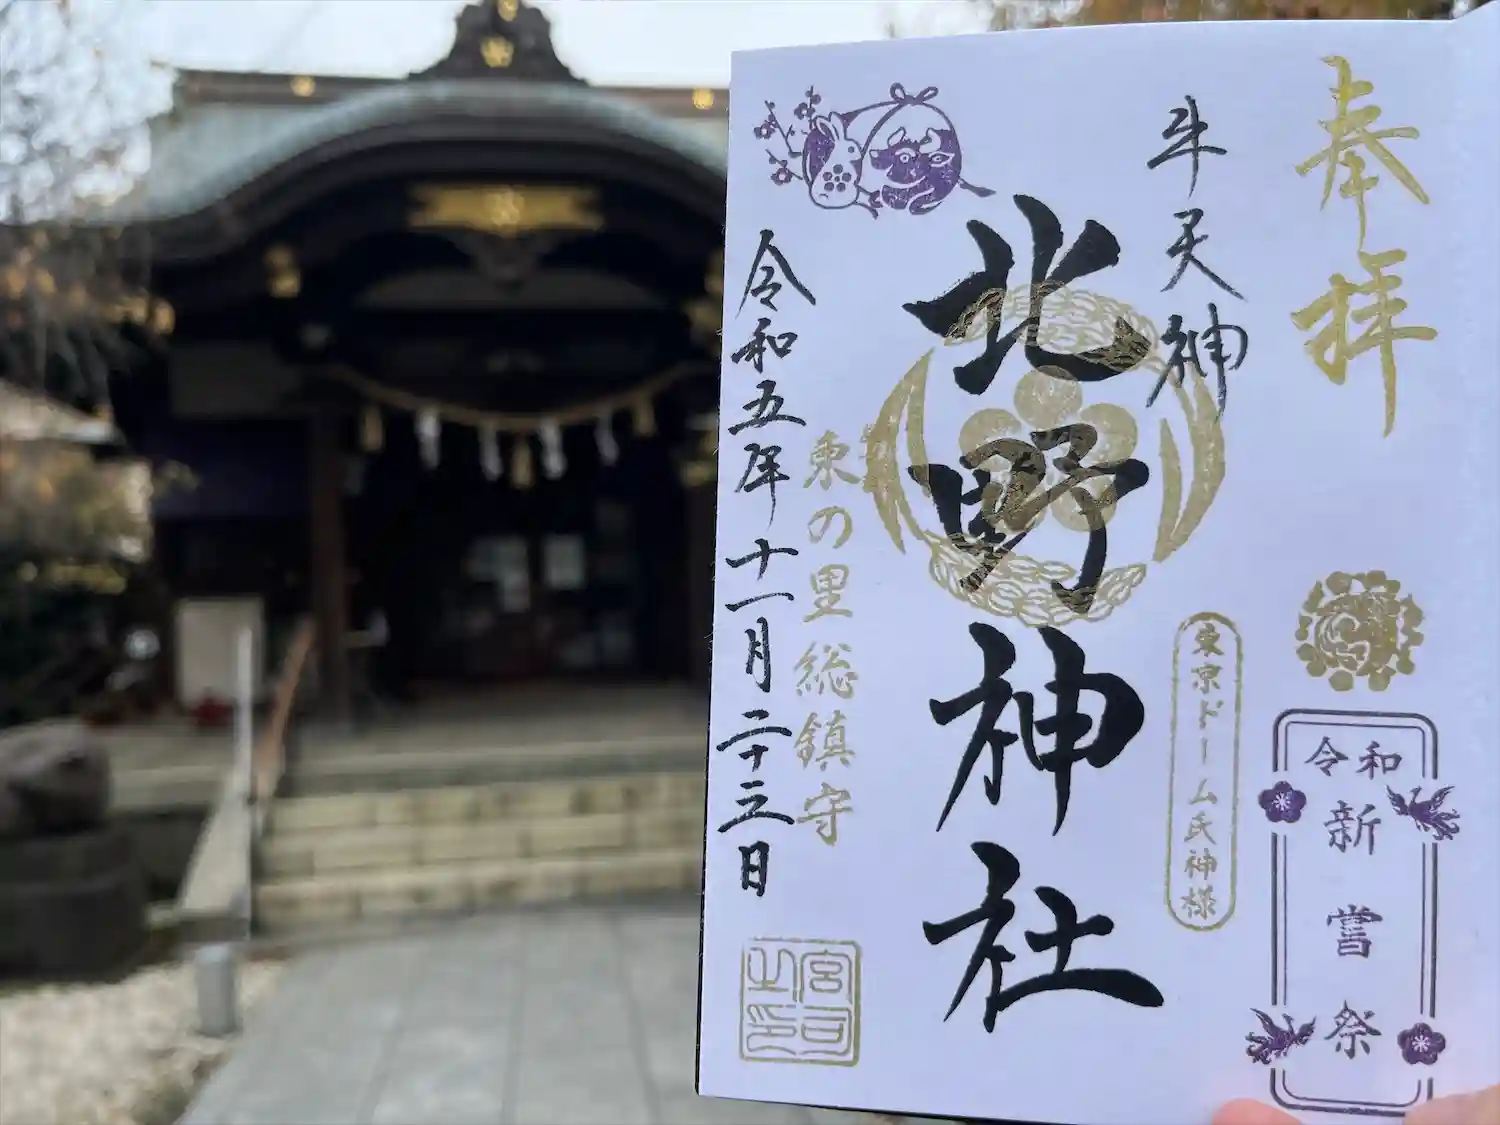 奉拝
令和
新嘗祭
牛天神
東京ドーム氏神様
北野神社
東の里総鎮守
令和五年十一月二十三日
宮司之印